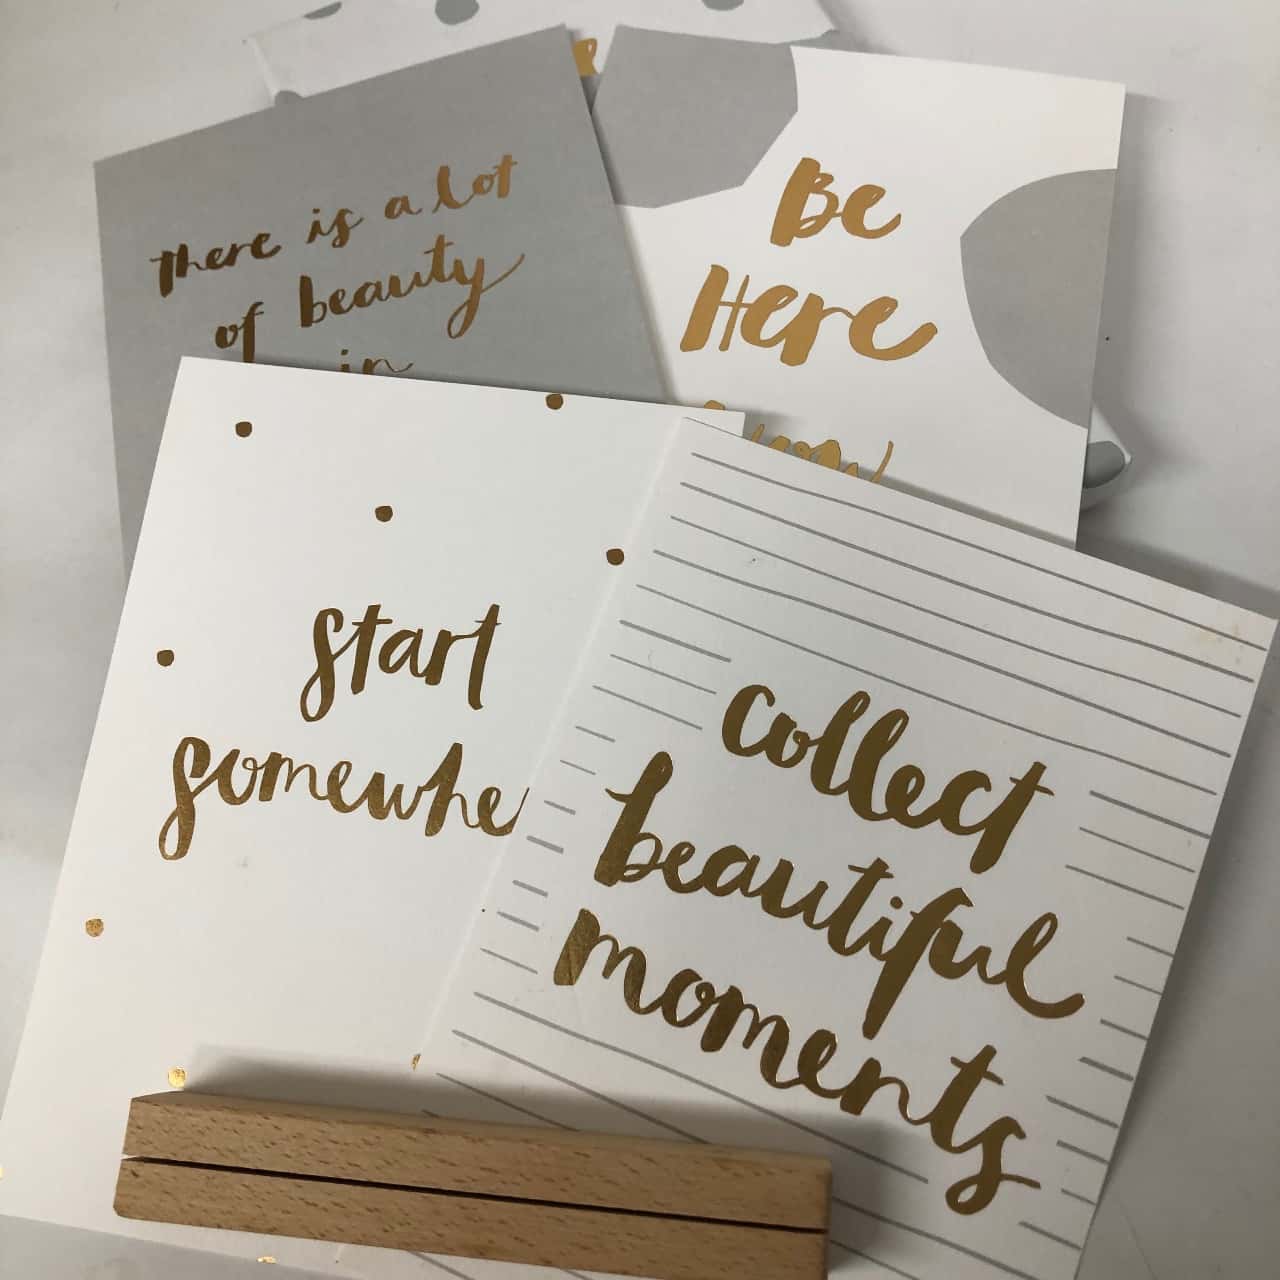 there is a lot
of beauty
in
Be
Here
start
somewhe
collect
beautiful
moments